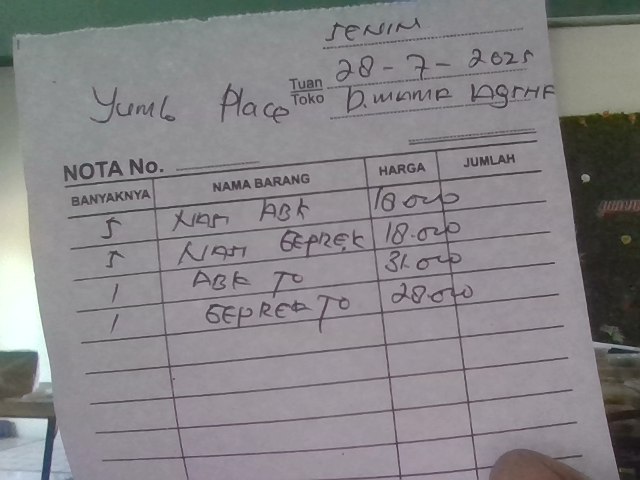 SENIN
28-7-2025
Yumb Place
Tuan
Toko D. MAMA AGTHA
NOTA No.
BANYAKNYA NAMA BARANG HARGA JUMLAH
5 NASI ABK 18.000
5 NASI GEPREK 18.000
1 ABK TO 31.000
1 GEPREK TO 28.000